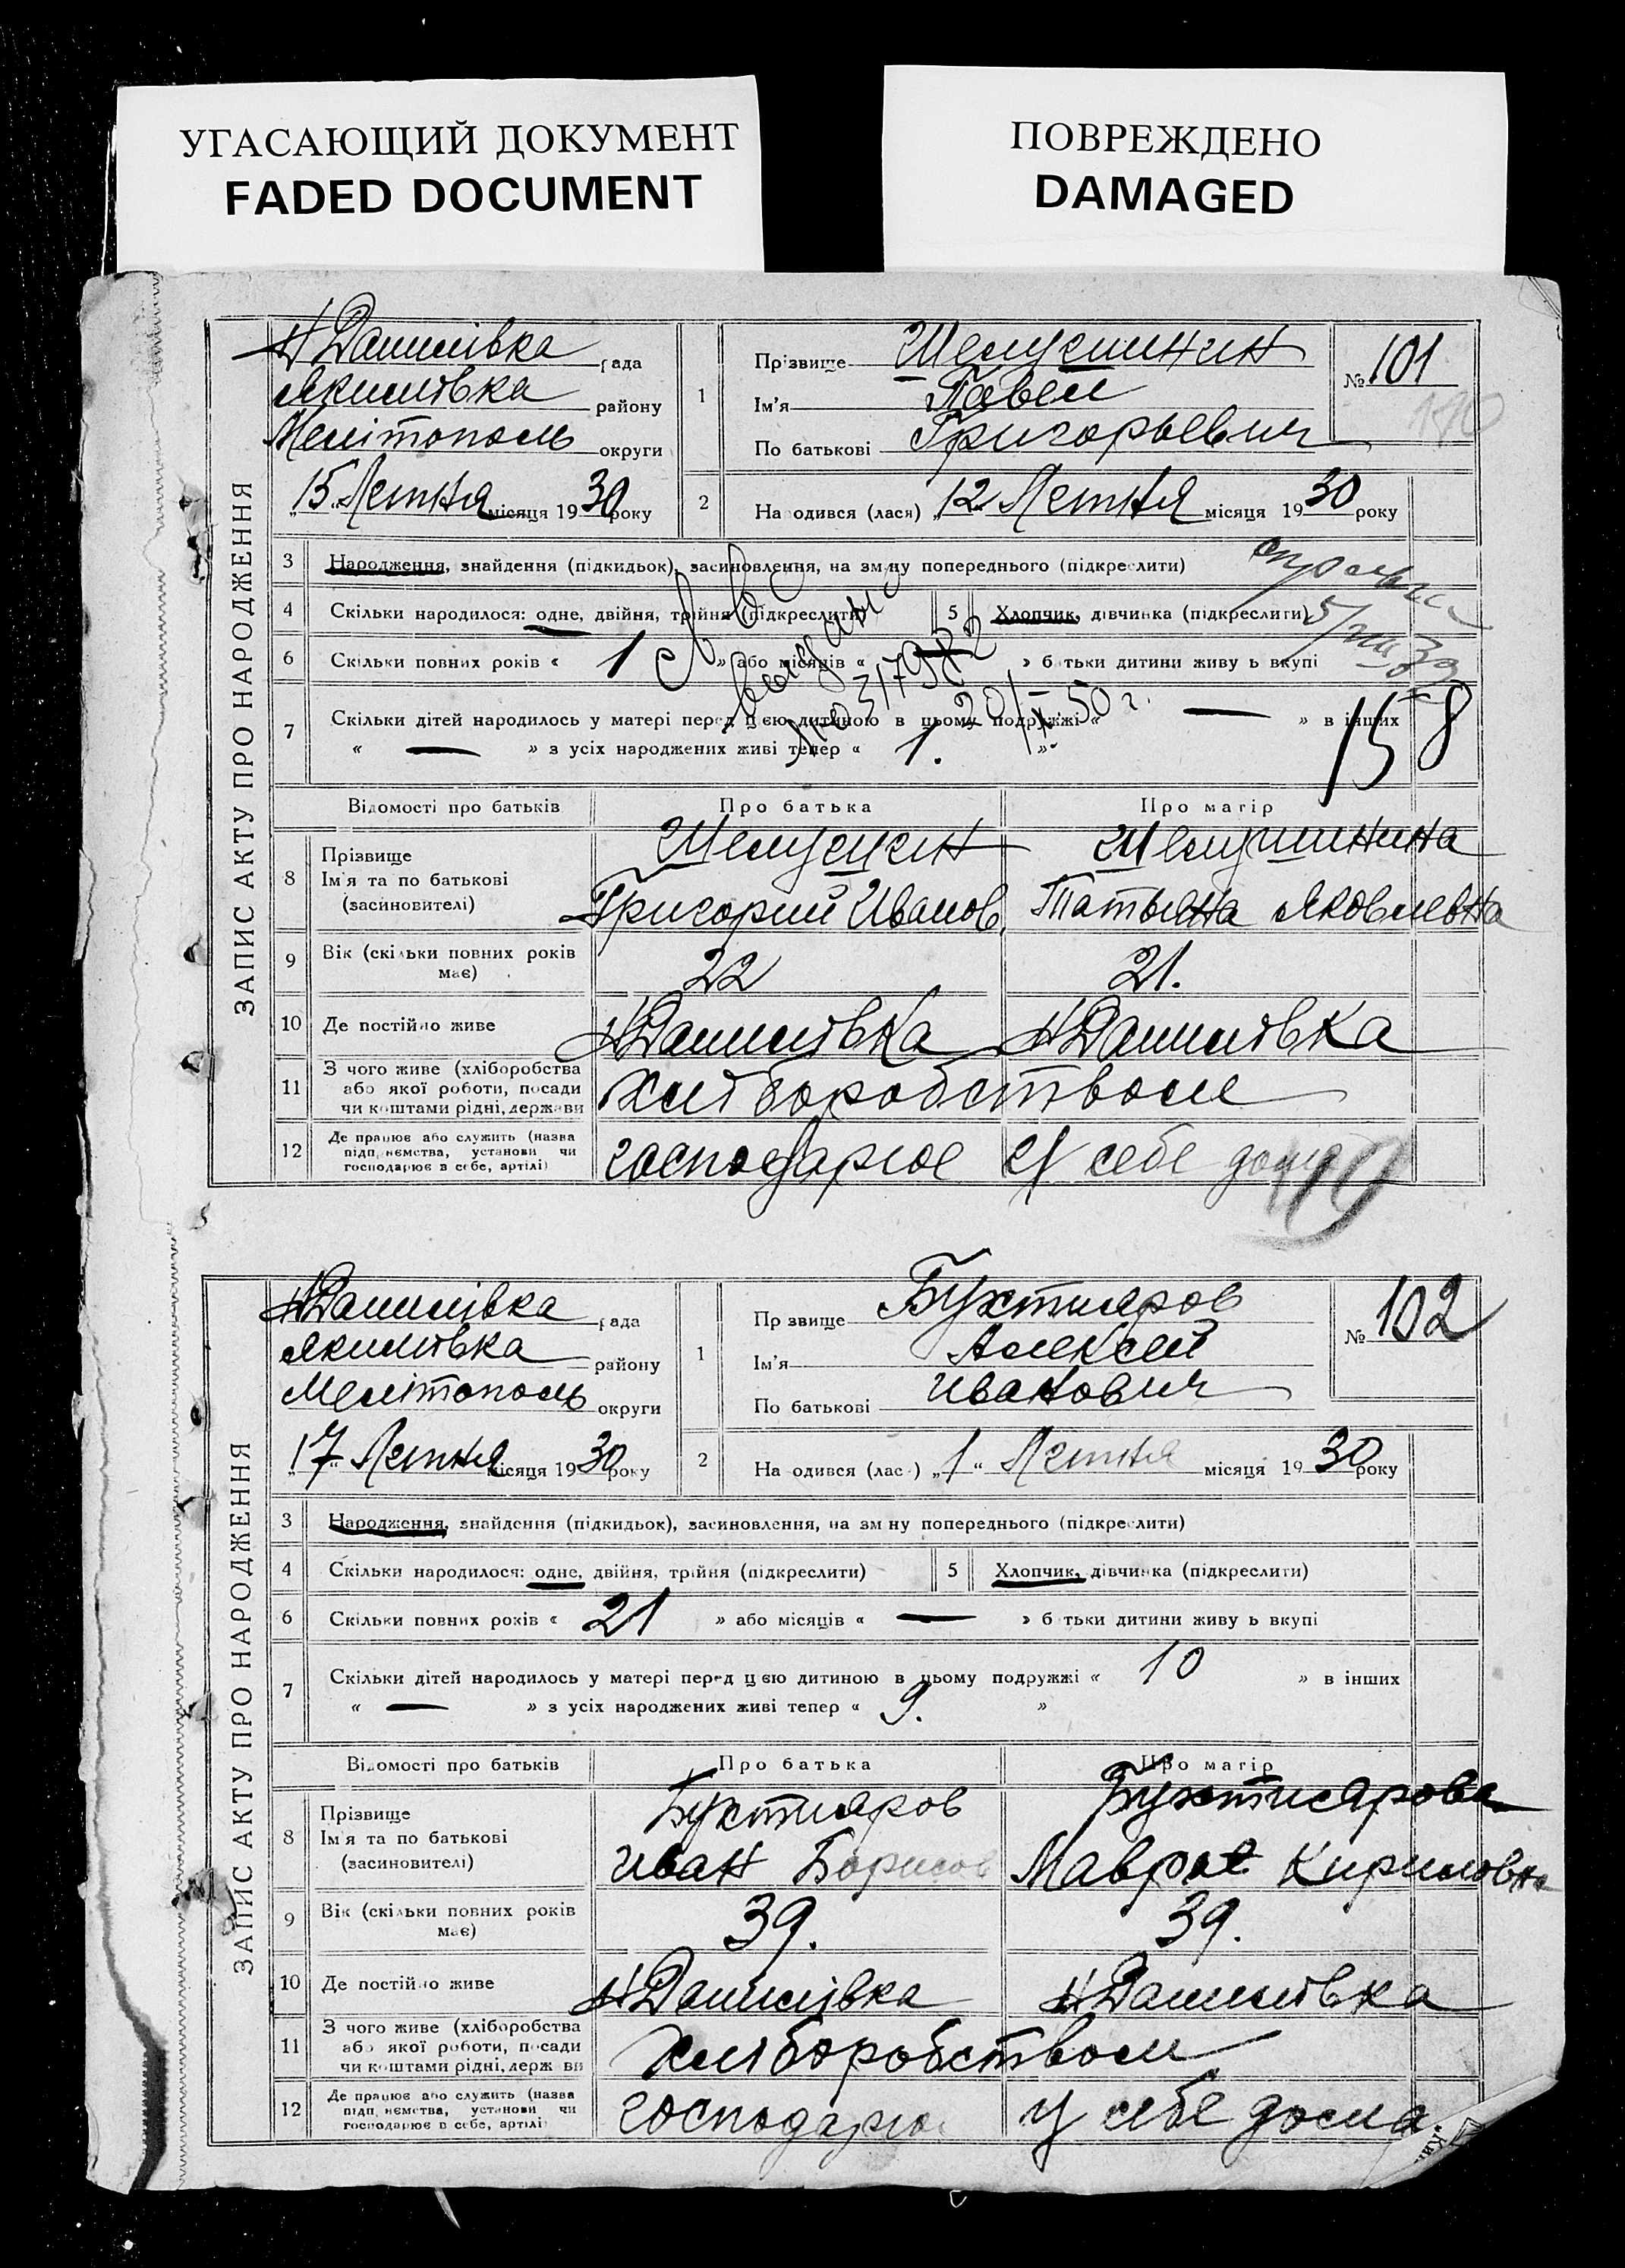 УГАСАЮЩИЙ ДОКУМЕНТ
FADED DOCUMENT
ПОВРЕЖДЕНО
DAMAGED
ЗАПИС АКТУ ПРО НАРОДЖЕННЯ
Н Данилівка рада
Якимівка району
Мелітополь округи
15 Летня місяця 1930 року
1
Прізвище Шелушинин
Ім'я Павел
По батькові Григорьевич
№ 101
2
На одився (лася) „12" Летня місяця 1930 року
3 Народження, знайдення (підкидьок), засиновлення, на зміну попереднього (підкреслити)
4 Скільки народилося: одне, двійня, трійня (підкреслити)
5 Хлопчик, дівчинка (підкреслити)
6 Скільки повних років « 1 » або місяців « — » б тьки дитини живу ь вкупі
7 Скільки дітей народилось у матері перед цією дитиною в цьому подружжі « — » в інших
« — » з усіх народжених живі тепер « 1. »
20/X 50 г.
158
Відомості про батьків
Про батька
Про матір
8 Прізвище
Ім'я та по батькові
(засиновителі)
Шелушинин
Григорий Иванов.
Шелушинина
Татьяна Яковлевна
9 Вік (скільки повних років
має)
22
21.
10 Де постійно живе
Н Данилівка
Н Данилівка
11 З чого живе (хліборобства
або якої роботи, посади
чи коштами рідні, держави
хліборобством
12 Де працює або служить (назва
підп иємства, установи чи
господарює в себе, артілі)
господарює У себе дома
ЗАПИС АКТУ ПРО НАРОДЖЕННЯ
Н Данилівка рада
Якимівка району
Мелітополь округи
„17" Летня місяця 1930 року
1
Пр звище Бухтияров
Ім'я Алексей
По батькові Иванович
№ 102
2
На одився (лас ) „1" Летня місяця 1930 року
3 Народження, знайдення (підкидьок), засиновлення, на зм ну попереднього (підкреслити)
4 Скільки народилося: одне, двійня, трійня (підкреслити)
5 Хлопчик, дівчинка (підкреслити)
6 Скільки повних років « 21 » або місяців « — » б тьки дитини живу ь вкупі
7 Скільки дітей народилось у матері перед цією дитиною в цьому подружжі « 10 » в інших
« — » з усіх народжених живі тепер « 9. »
Відомості про батьків
Про батька
Про матір
8 Прізвище
Ім'я та по батькові
(засиновителі)
Бухтияров
Иван Борисов
Бухтиярова
Мавра Кириловна
9 Вік (скільки повних років
має)
39.
39.
10 Де постійно живе
Н Данилівка
Н Данилівка
11 З чого живе (хліборобства
або якої роботи, посади
чи коштами рідні, держ ви
хліборобством
12 Де працює або служить (назва
підп иємства, установи чи
господарює в себе, артілі
господарює у себе дома